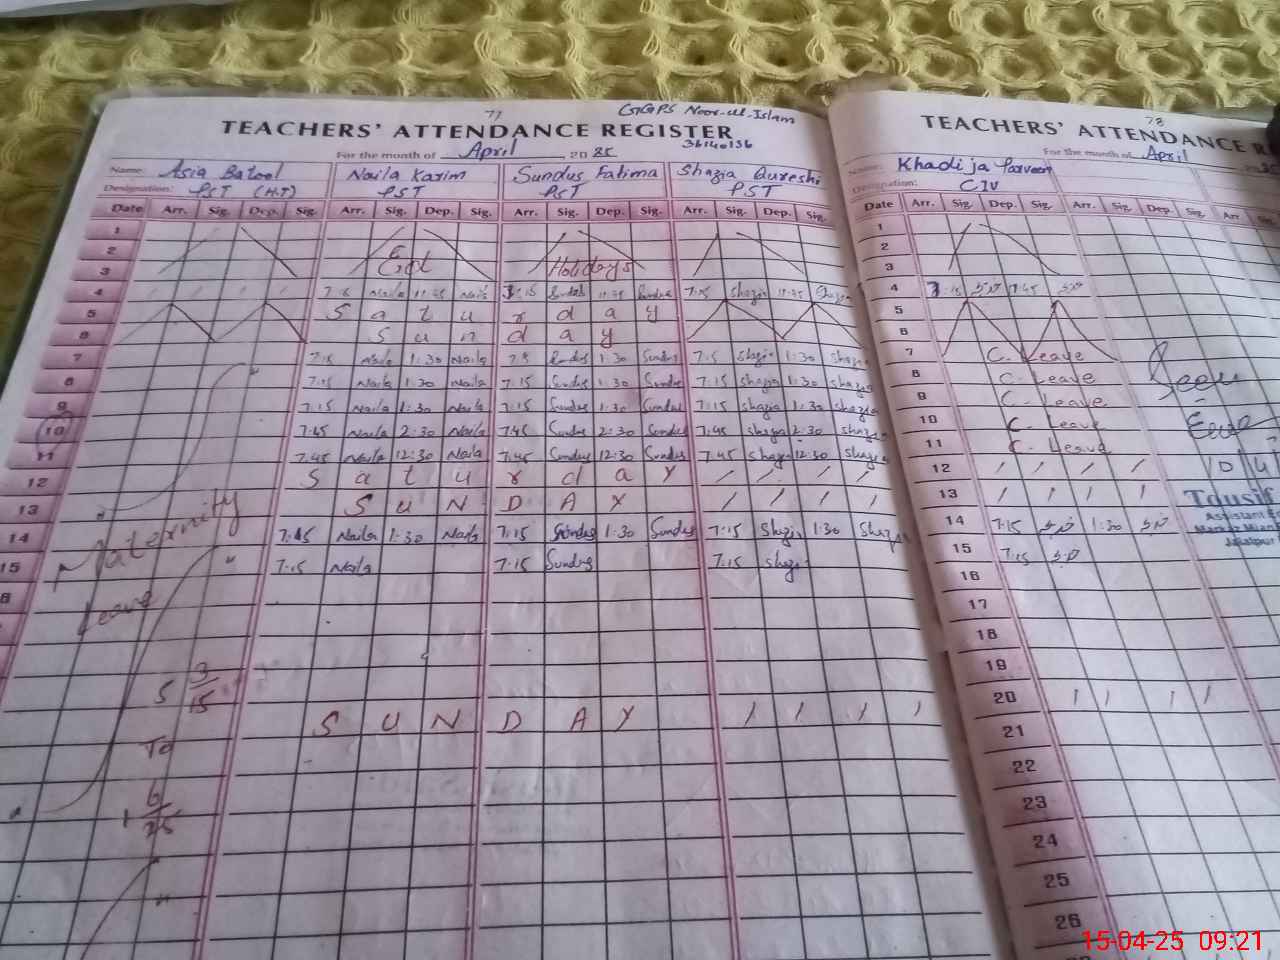 77
GGPS Noor-ul-Islam
TEACHERS' ATTENDANCE REGISTER
36140136
For the month of April 2025
Name: Asia Batool Naila Karim Sundus Fatima Shazia Qureshi
Designation: PST (H.T) PST PST PST
Date Arr. Sig. Dep. Sig. Arr. Sig. Dep. Sig. Arr. Sig. Dep. Sig. Arr. Sig. Dep. Sig.
1
2
3 Eid Holidays
4 Naila 11:45 Naila Sundus 11:45 Sundus 7:15 Shazia 11:45 Shazia
5 S a t u r d a y
6 S u n d a y
7 7:15 Naila 1:30 Naila Sundus 1:30 Sundus 7:15 Shazia 1:30 Shazia
8 7:15 Naila 1:30 Naila 7:15 Sundus 1:30 Sundus 7:15 Shazia 1:30 Shazia
9 7:15 Naila 1:30 Naila 7:15 Sundus 1:30 Sundus 7:15 Shazia 1:30 Shazia
10 7:45 Naila 2:30 Naila 7:45 Sundus 2:30 Sundus 7:45 Shazia 2:30 Shazia
11 7:45 Naila 12:30 Naila 7:45 Sundus 12:30 Sundus 7:45 Shazia 12:30 Shazia
12 S a t u r d a y / / / /
13 S U N D A Y / / / /
14 7:45 Naila 1:30 Naila 7:15 Sundus 1:30 Sundus 7:15 Shazia 1:30 Shazia
15 7:15 Naila 7:15 Sundus 7:15 Shazia
Maternity
Leave
5 3/15
To
1 6/25
S U N D A Y / / / /
78
TEACHERS' ATTENDANCE
For the month of April
Name: Khadija Parveen
Designation: C IV
Date Arr. Sig. Dep. Sig. Arr. Sig. Dep. Sig. Arr.
1
2
3
4 7:15 11:45
5
6
7 C. Leave
8 C. Leave
9 C. Leave
10 C. Leave
11 C. Leave
12 / / / /
13 / / / /
14 7:15 1:30
15 7:15
16
17
18
19
20 / / / /
21
22
23
24
25
26
Seen
10 4
Tausif
Assistant
Markaz Mian
Jalalpur
15-04-25 09:21